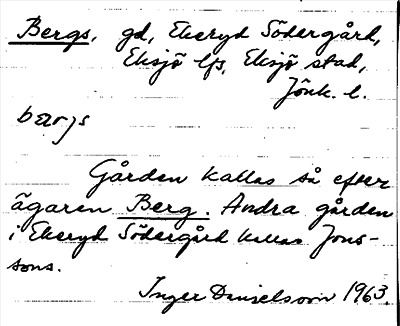 Bergs, gd, Ekeryd Södergård,
Eksjö lfs, Eksjö stad,
Jönk. l.
bærjs
Gården kallas så efter
ägaren Berg. Andra gården
i Ekeryd Södergård kallas Jons-
sons.
Inger Danielsson 1963.